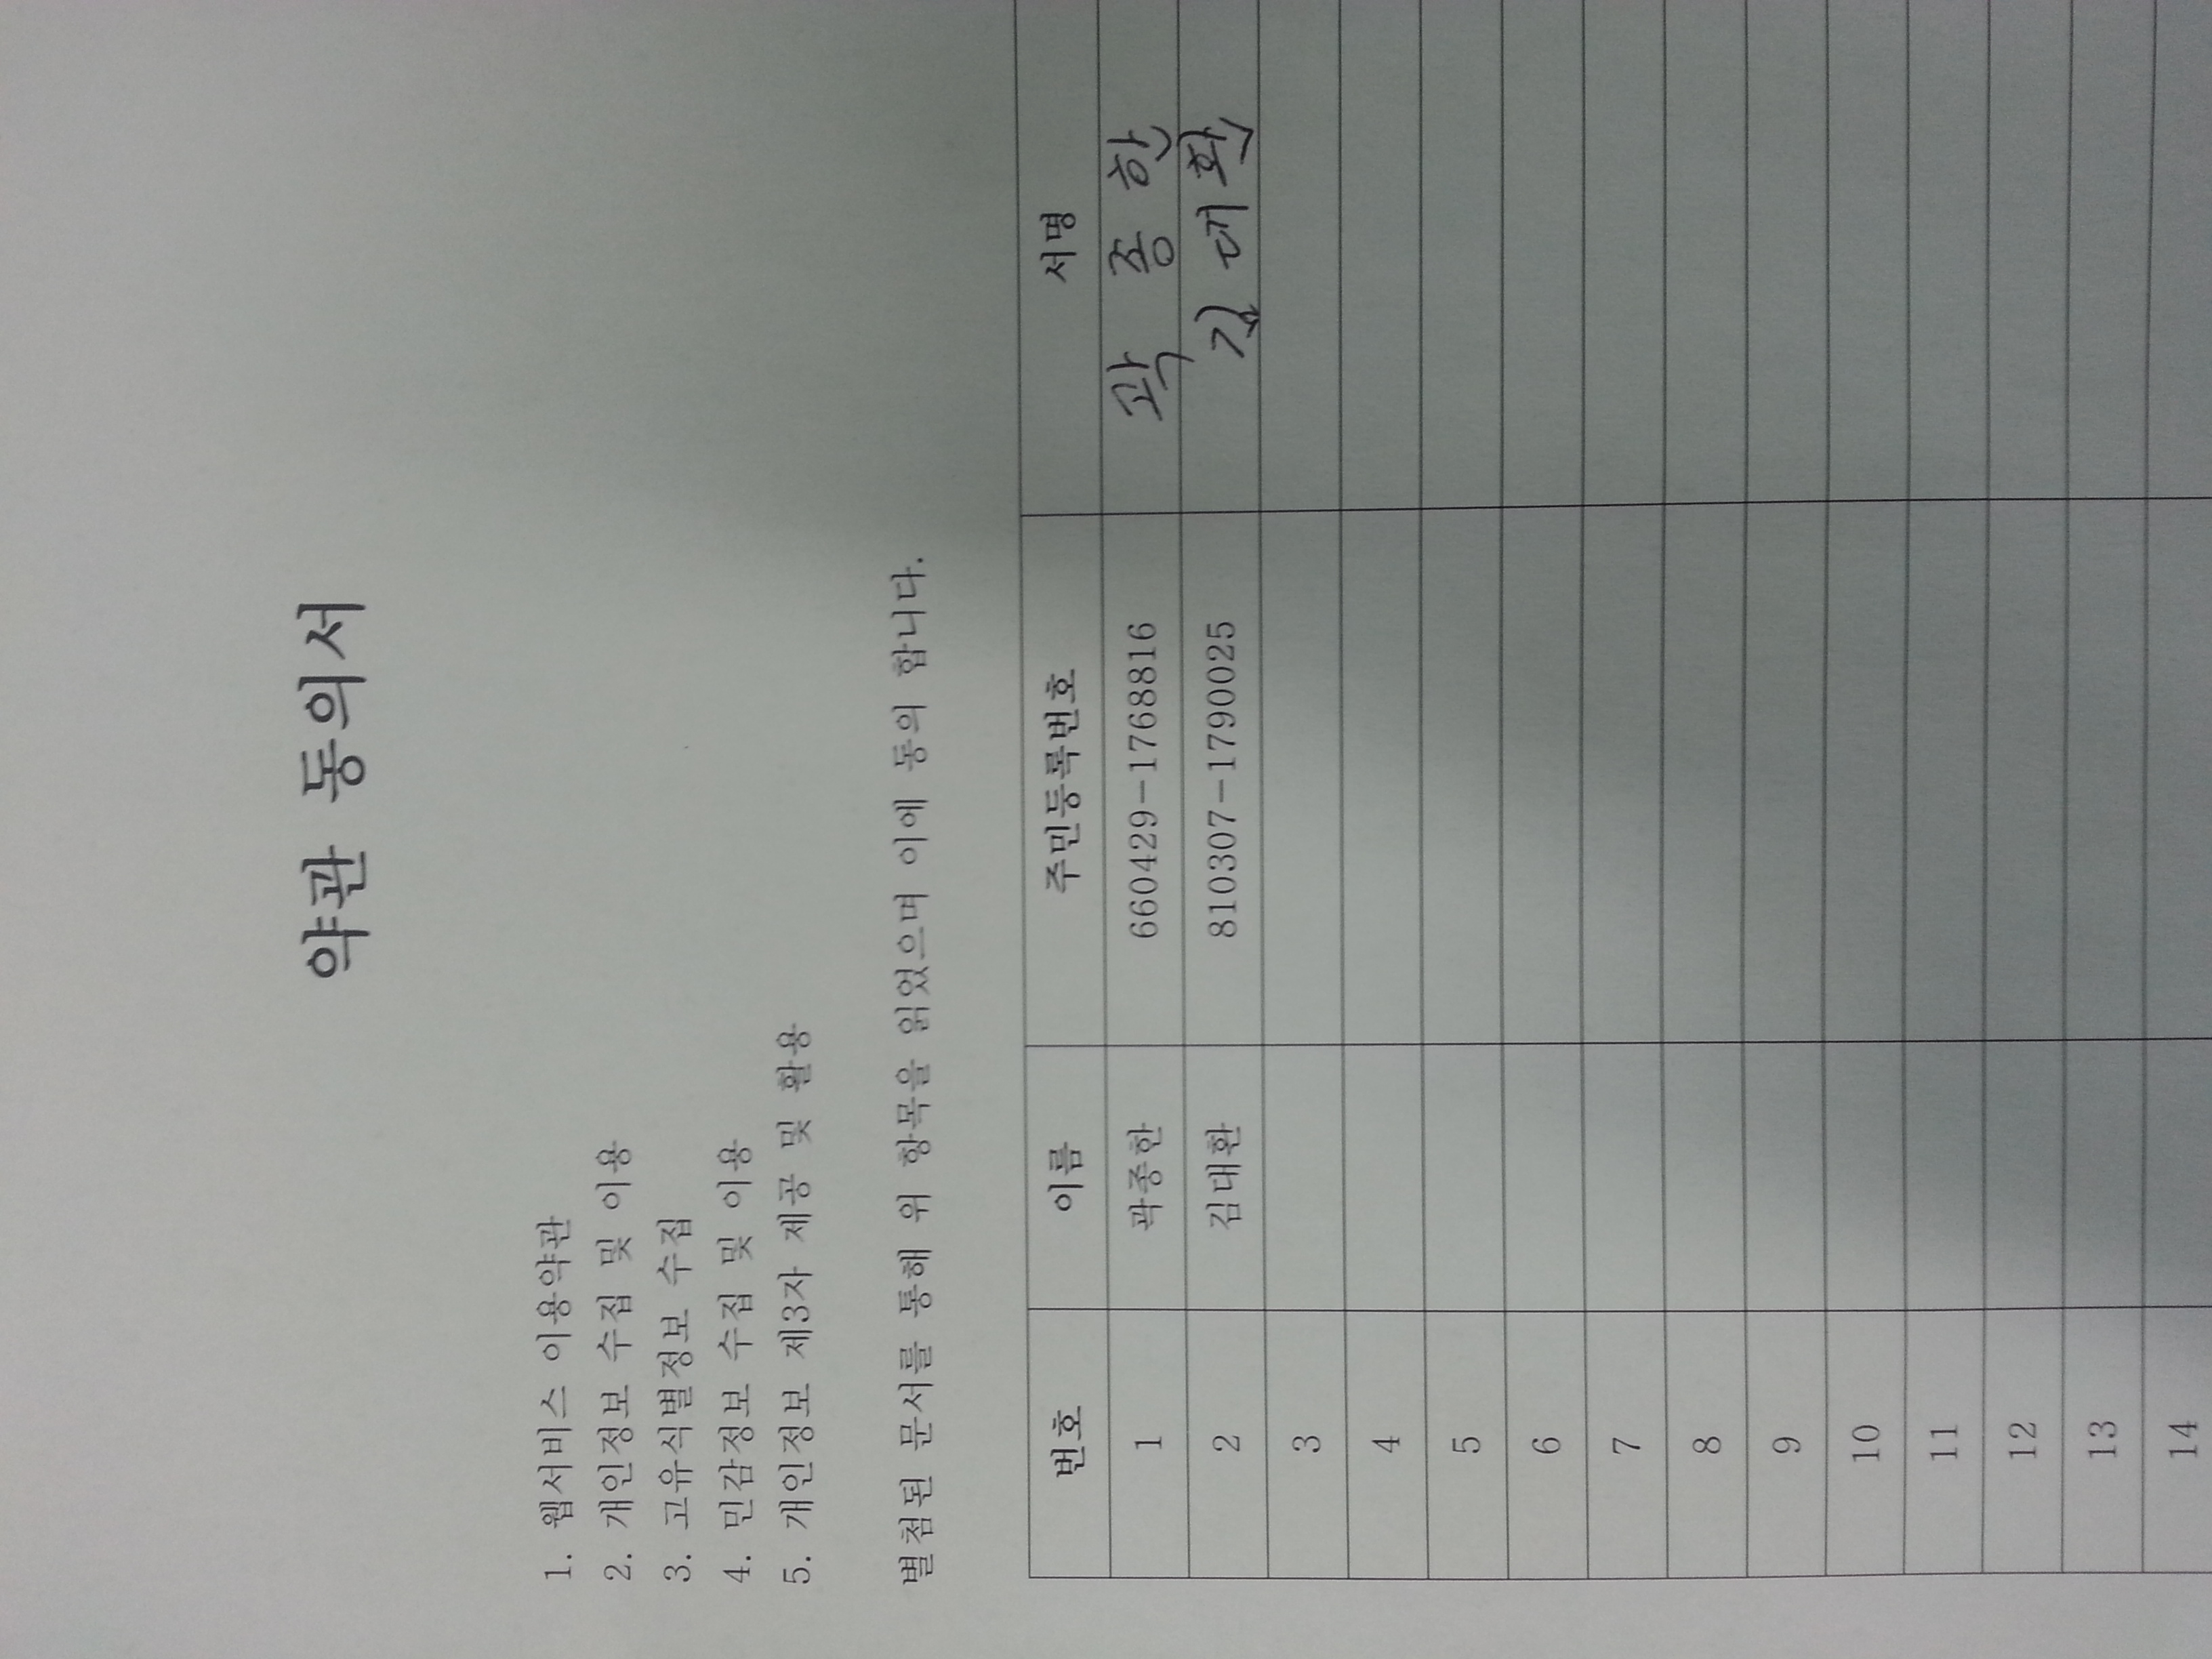 약관 동의서
1. 웹서비스 이용약관
2. 개인정보 수집 및 이용
3. 고유식별정보 수집
4. 민감정보 수집 및 이용
5. 개인정보 제3자 제공 및 활용
별첨된 문서를 통해 위 항목을 읽었으며 이에 동의 합니다.
번호 이름 주민등록번호 서명
1 곽종한 660429-1768816 곽종한
2 김대환 810307-1790025 김대환
3
4
5
6
7
8
9
10
11
12
13
14